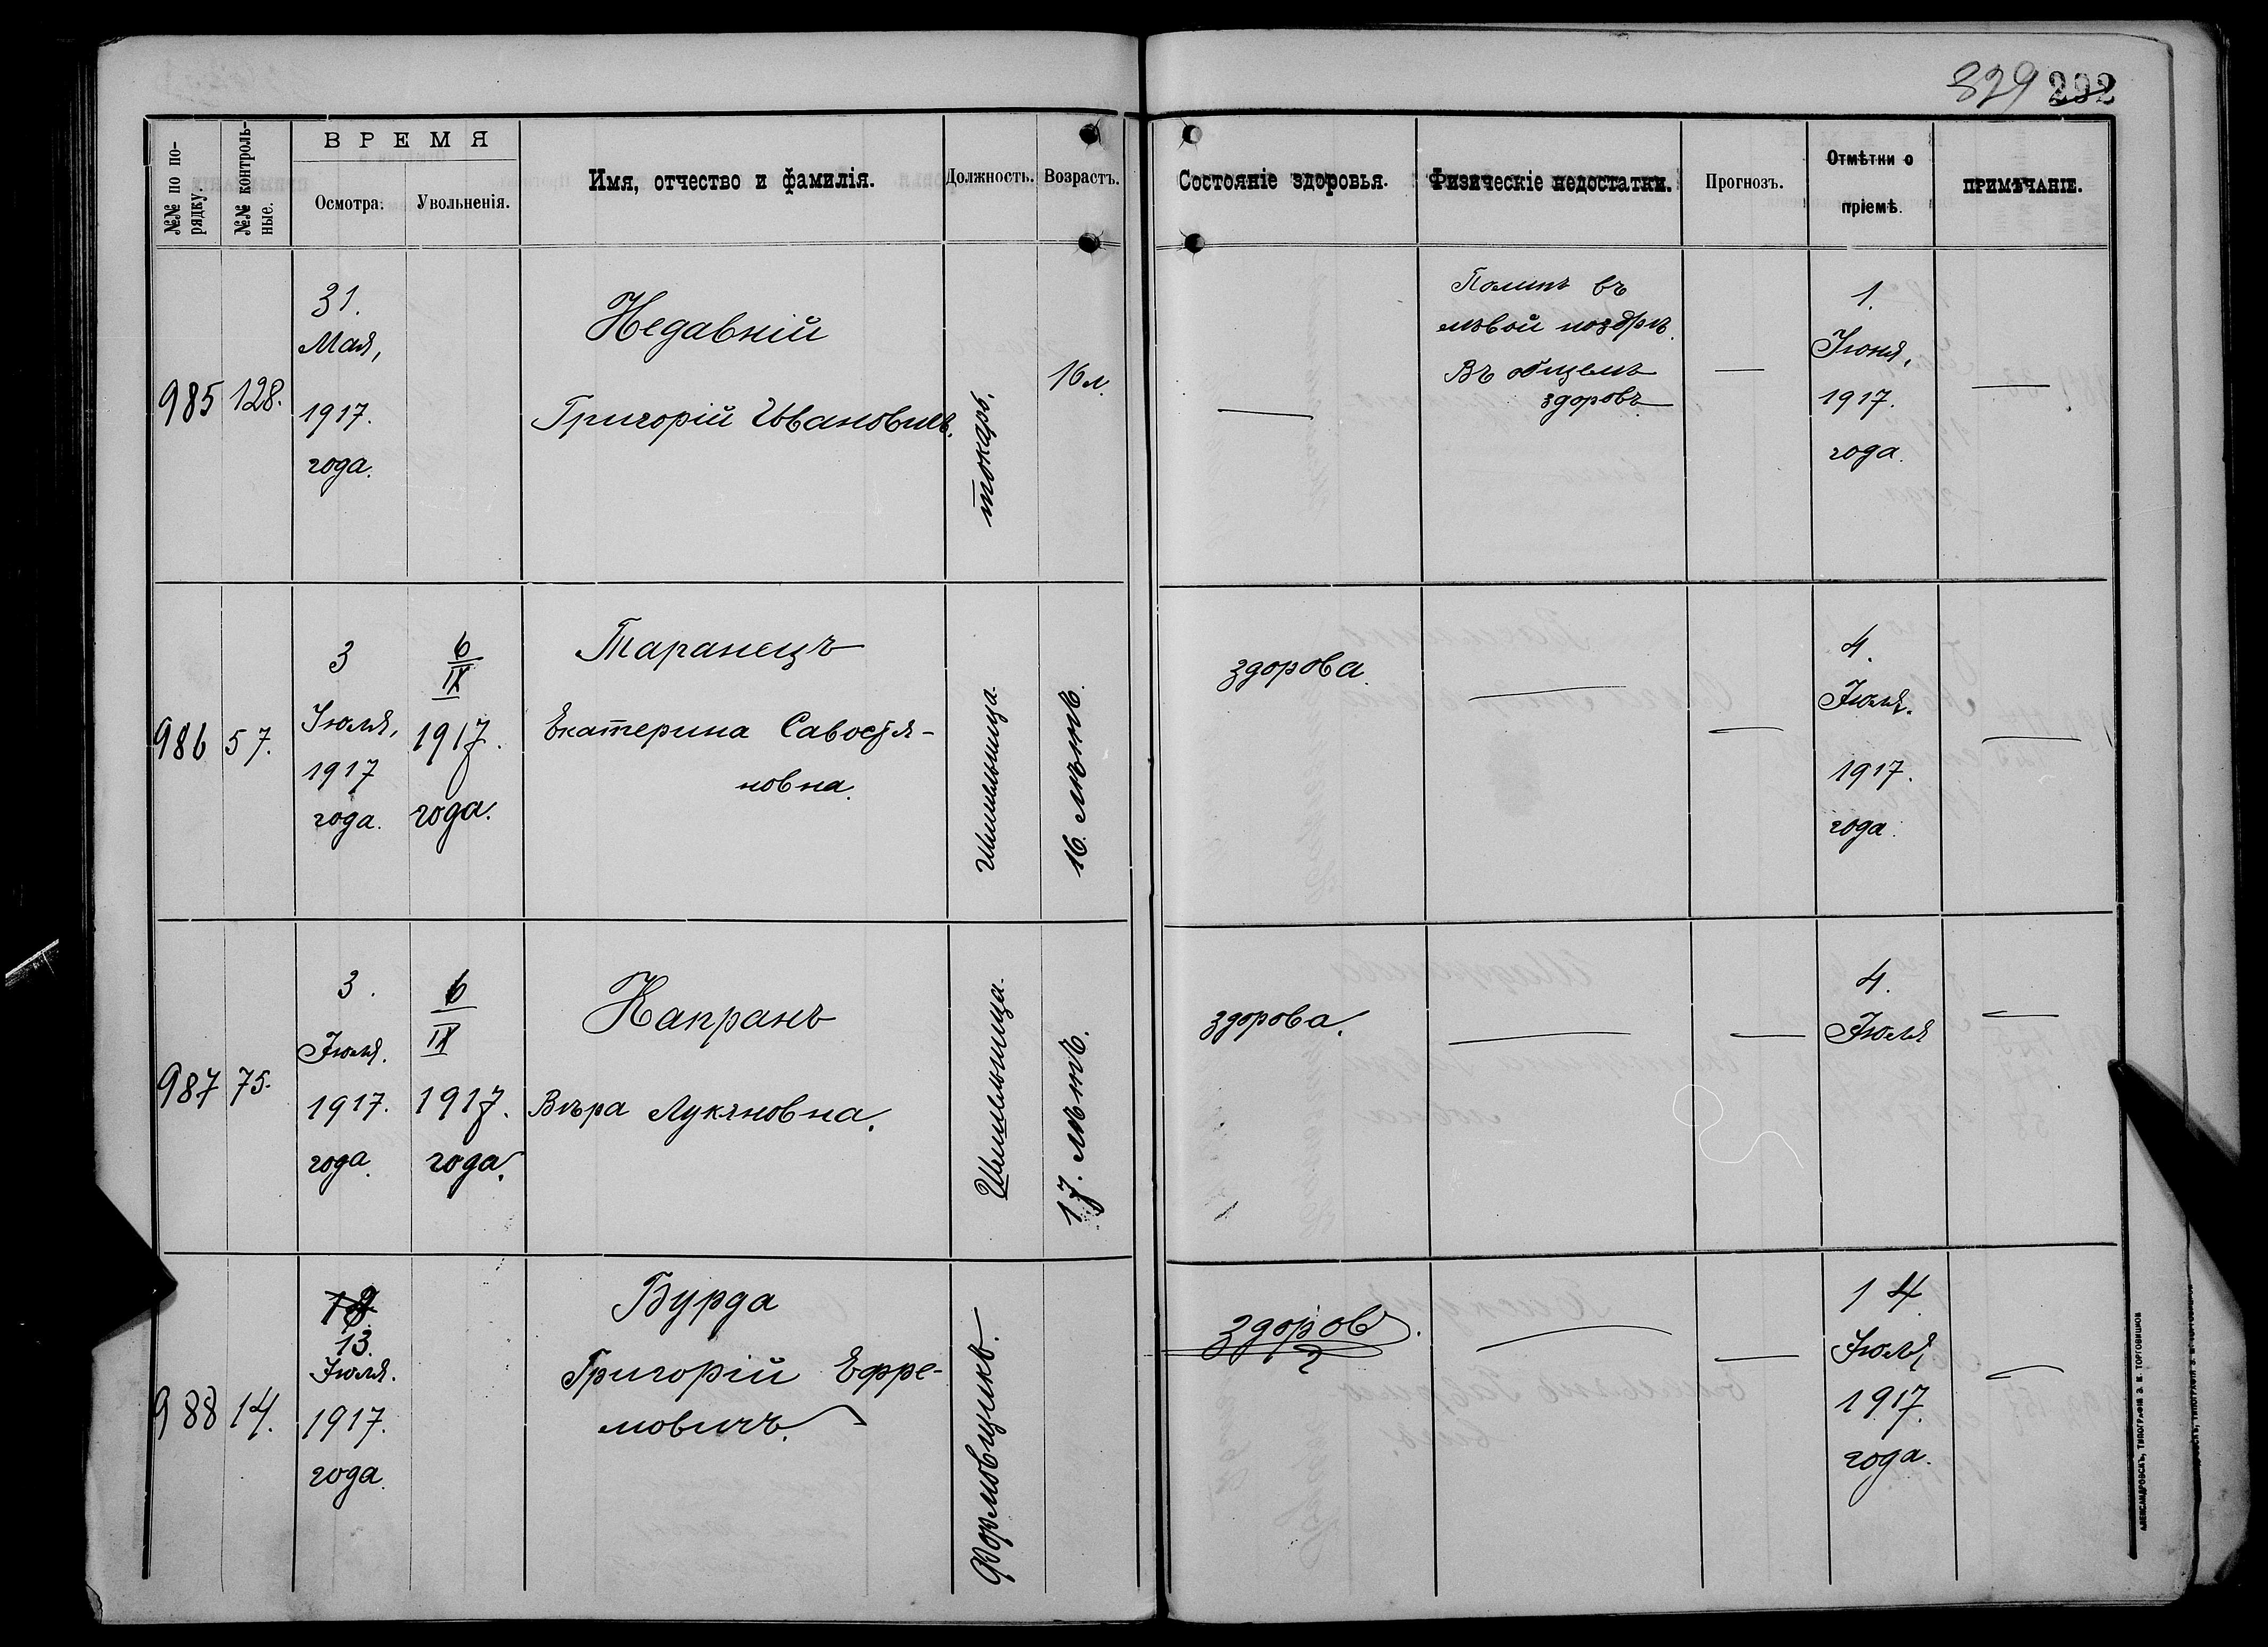 329 292
№№ по по-
рядку.
№№ контроль-
ные.
ВРЕМЯ
Осмотра.
Увольненія.
Имя, отчество и фамилія.
Должность.
Возрастъ.
Состояніе здоровья.
Физическіе недостатки.
Прогнозъ.
Отмѣтки о
пріемѣ.
ПРИМѢЧАНІЕ.
985
128.
31.
Мая,
1917.
года.
Недавній
Григорій Ивановичъ.
токарь.
16 л.
—
Полипъ въ
лѣвой ноздрѣ.
Въ общемъ
здоровъ
—
1.
Іюня,
1917.
года.
—
986
57.
3
Іюля,
1917
года.
6
IX
1917.
года.
Таранецъ
Екатерина Савостя-
новна.
Шишельница.
16. лѣтъ.
здорова.
—
—
4.
Іюля.
1917.
года.
—
987
75.
3.
Іюля.
1917.
года.
6
IX
1917.
года.
Капранъ
Вѣра Лукяновна.
Шишельница.
17. лѣтъ.
здорова.
—
—
4.
Іюля
—
988
14.
13.
Іюля.
1917.
года.
Бурда
Григорій Ефре-
мовичъ.
Формовщикъ.
здоровъ.
—
—
14
Іюля,
1917.
года.
—
АЛЕКСАНДРОВСКЪ, ТИПОГРАФІЯ З. И. ТОРГОВИЦКОВ